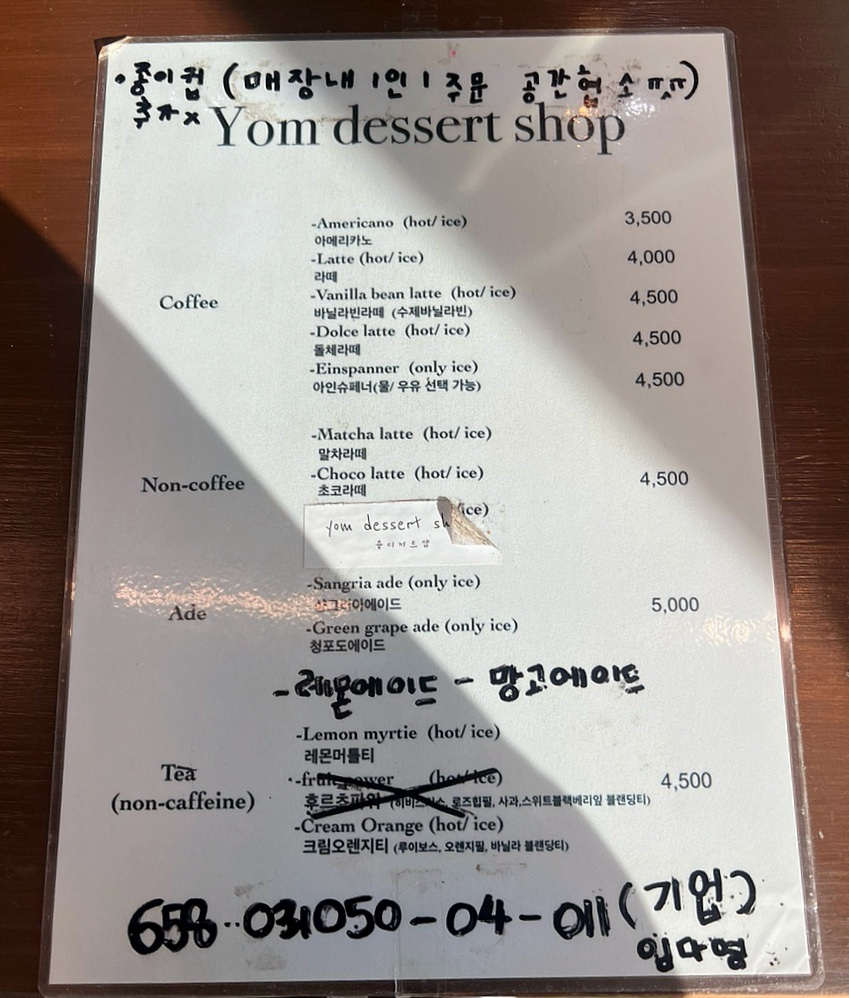 ·종이컵 (매장내 1인 1 주문 공간협소ㅠㅠ)
추가x
Yom dessert shop
Coffee
-Americano (hot/ ice) 3,500
아메리카노
-Latte (hot/ ice) 4,000
라떼
-Vanilla bean latte (hot/ ice) 4,500
바닐라빈라떼 (수제바닐라빈)
-Dolce latte (hot/ ice) 4,500
돌체라떼
-Einspanner (only ice) 4,500
아인슈페너(물/ 우유 선택 가능)
Non-coffee
-Matcha latte (hot/ ice)
말차라떼
-Choco latte (hot/ ice) 4,500
초코라떼
ice)
yom dessert sh
Ade
-Sangria ade (only ice)
샹그리아에이드 5,000
-Green grape ade (only ice)
청포도에이드
-레몬에이드 - 망고에이드
Tea
(non-caffeine)
-Lemon myrtie (hot/ ice)
레몬머틀티
-fruit power (hot/ ice) 4,500
후르츠파워 (히비스커스, 로즈힙필, 사과,스위트블랙베리잎 블랜딩티)
-Cream Orange (hot/ ice)
크림오렌지티 (루이보스, 오렌지필, 바닐라 블랜딩티)
658-031050-04-011 (기업)